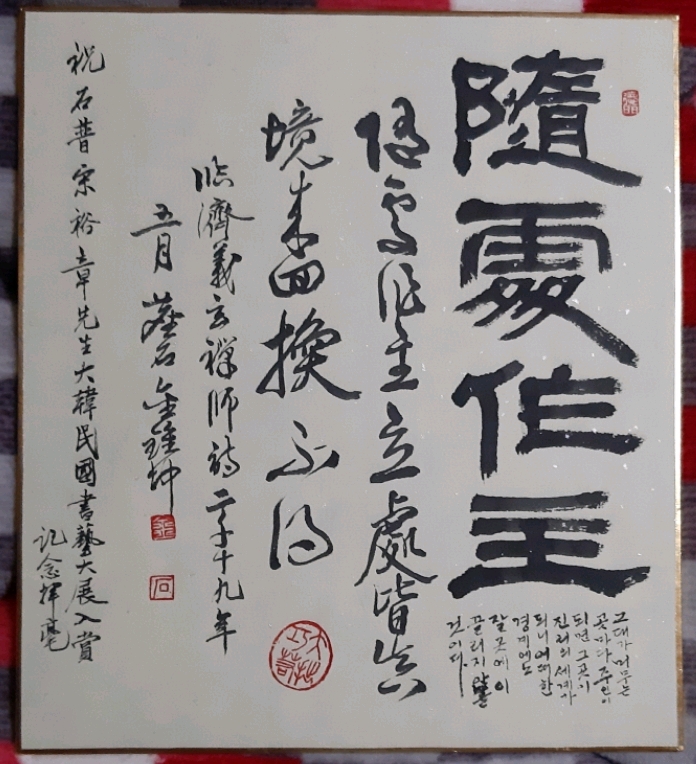 隨處作主
그대가 머무는
곳마다 주인이
되면 그곳이
진리의 세계가
되니 어떠한
경계에도
끌리지 않을
것이다.
隨處作主立處皆真
境來回換不得
大巧若拙
臨濟義玄禪師詩 二千十九年
五月 石 金 坤
祝 石普宋裕章先生大韓民國書藝大展入賞
記念揮毫